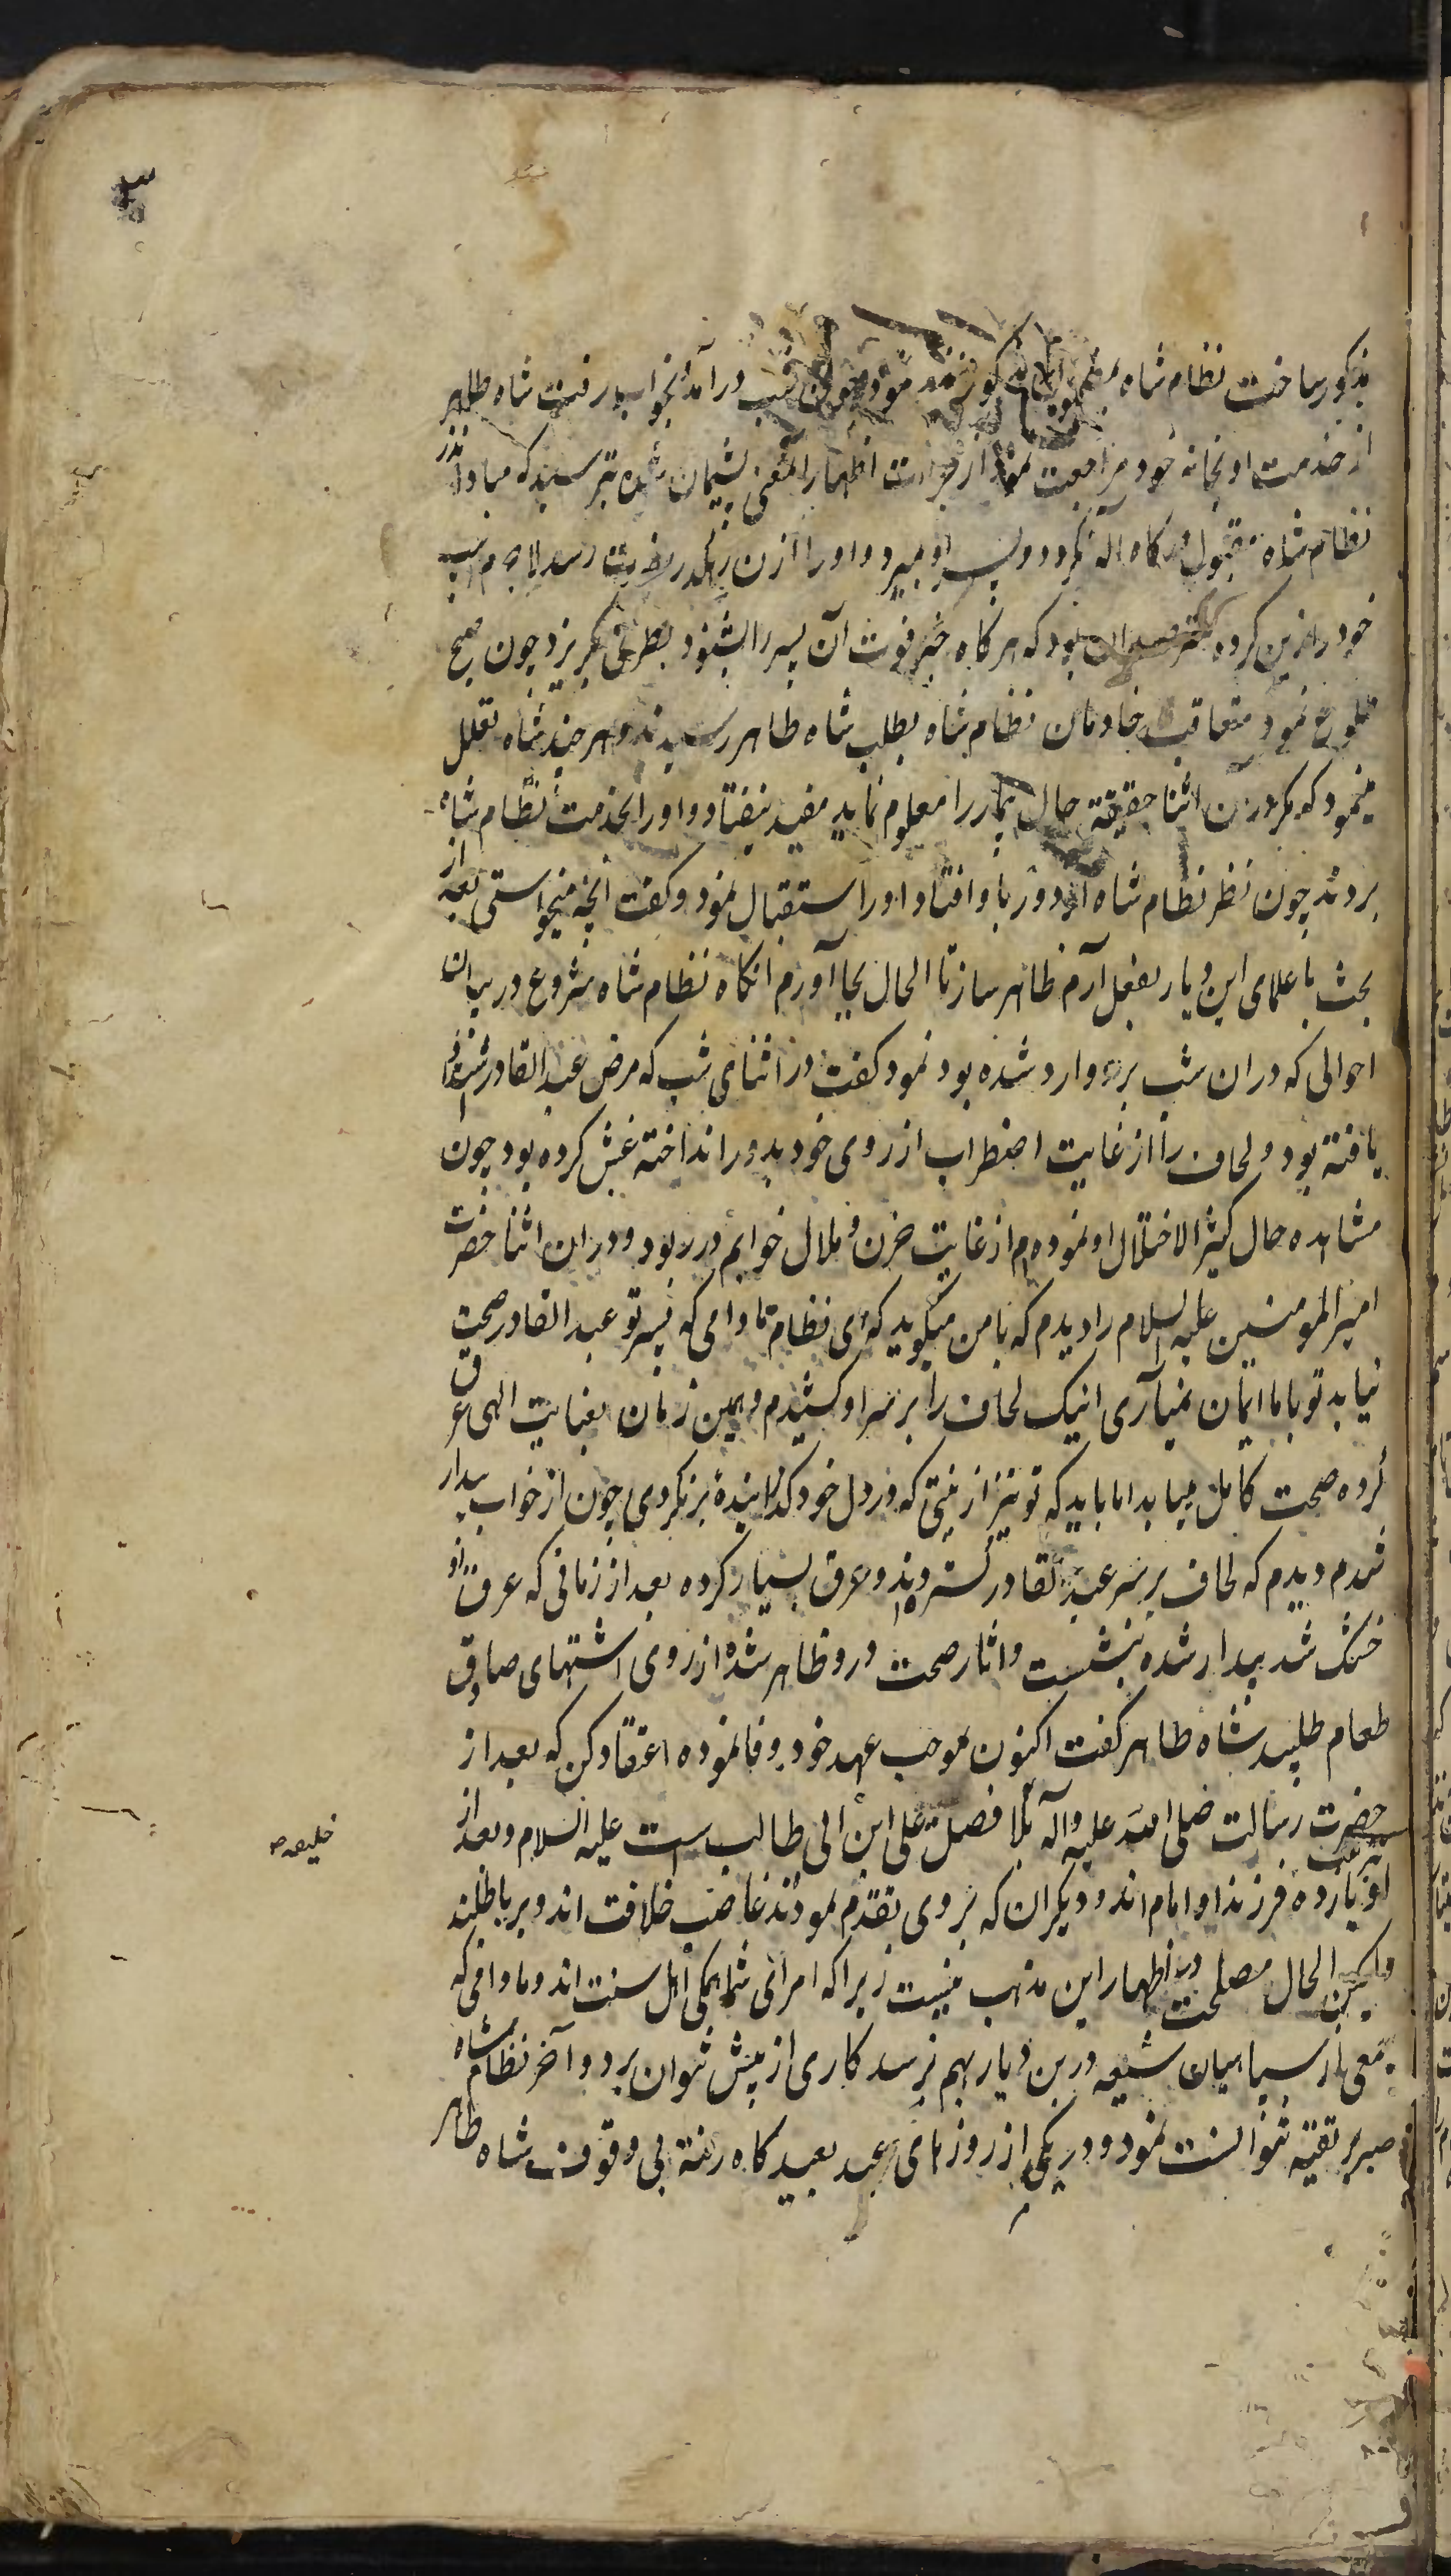 ۳
مذکور ساخت نظام شاه مذکور نذر نمود چون شب درآمد بخواب رفت شاه طاهر
از خدمت او بخانه خود مراجعت نمود از جرات اظهار آن معنی پشیمان شده بترسید که مبادا نذر
نظام شاه مقبول درکاه اله نکردد و پسر او بمیرد و او را ازن رهکذر مضرت رسد لاجرم اسب
خود را زین کرده مترصد ان بود که هر کاه خبر فوت آن پسر را بشنود بطرفی بکریزد چون صبح
طلوع نمود متعاقب خادمان نظام شاه بطلب شاه طاهر رسیدند و هر چند شاه تعلل
مینمود که مکر درن اثنا حقیقة حال بیمار را معلوم نماید مفید نیفتاد و او را بخدمت نظام شاه
بردند چون نظر نظام شاه از دور باو افتاد او را استقبال نمود و کفت انچه میخواستی بعد از
بحث با علمای این دیار بفعل آرم ظاهر ساز تا الحال بجا آورم انکاه نظام شاه شروع در بیان
احوالی که دران شب برو وارد شده بود نمود کفت در اثنای شب که مرض عبد القادر اشتداد
یافته بود و لحاف را از غایت اضطراب از روی خود بدور انداخته غش کرده بود چون
مشاهده حال کثیر الاختلال او نمودم از غایت حزن و ملال خوابم در ربود و دران اثنا حضرت
امیر المومنین علیه السلام را دیدم که بامن میکوید که ای نظام تا دامی که پسر تو عبد القادر صحت
نیابد تو باما ایمان نمیآری اینک لحاف را بر سر او کشیدم و همین زمان بعنایت الهی عرق
کرده صحت کامل مییابد اما باید که تو نیز از نیتی که در دل خود کذرانیدهٔ برنکردی چون از خواب بیدار
شدم دیدم که لحاف بر سر عبد القادر کسترده اند و عرق بسیار کرده بعد از زمانی که عرق او
خشک شد بیدار شده بنشست و اثار صحت درو ظاهر شده از روی اشتهای صادق
طعام طلبید شاه طاهر کفت اکنون بموجب عهد خود وفا نموده اعتقاد کن که بعد از
حضرت رسالت صلی الله علیه و آله بلا فصل علی ابن ابی طالب است علیه السلام و بعد از
خلیفه ص
او یازده فرزند او امام اند و دیکران که بر وی تقدم نمودند غاصب خلافت اند و بر باطلند
ولیکن الحال مصلحت در اظهار این مذهب نیست زیرا که امرای شما همکی اهل سنت اند و مادامی که
جمعی از سپاهیان شیعه درین دیار بهم نرسد کاری از پیش نتوان برد و آخر نظام شاه
صبر بر تقیه نتوانست نمود و در یکی از روزهای عید بعید کاه رفته بی وقوف شاه طاهر